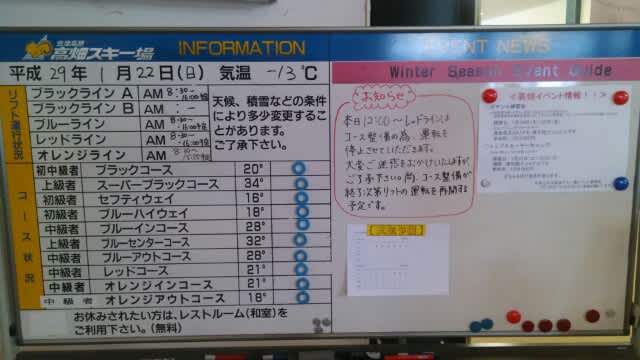 会津高原
高畑スキー場
INFORMATION
平成29年1月22日(日) 気温 -13℃
リフト運行状況
ブラックライン A AM 8:30~16:00予定
ブラックライン B AM
ブルーライン AM 8:30~16:00予定
レッドライン AM 8:30~16:00予定
オレンジライン AM 8:30~
天候、積雪などの条件
により多少変更するこ
とがあります。
ご了承下さい。
コース状況
初中級者 ブラックコース 20°
上級者 スーパーブラックコース 34°
初級者 セフティウェイ 16°
初級者 ブルーハイウェイ 18°
中級者 ブルーインコース 28°
上級者 ブルーセンターコース 32°
中級者 ブルーアウトコース 28°
中級者 レッドコース 21°
中級者 オレンジインコース 21°
中級者 オレンジアウトコース 18°
お休みされたい方は、レストルーム(和室)を
ご利用下さい。(無料)
EVENT NEWS
Winter Season Event Guide
お知らせ
本日12:00~レッドラインは
コース整備の為、運転を
停止させていただきます。
大変ご迷惑をおかけいたしますが
ご了承下さい。尚、コース整備が
終了次第リフトの運転を再開する
予定です。
≪高畑イベント情報!!≫